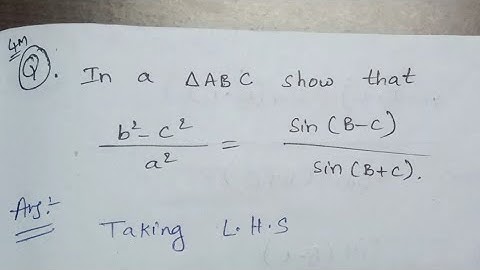 4M
Q. In a ΔABC show that
b² - c² / a² = sin (B-C) / sin (B+C).
Ans:- Taking L.H.S